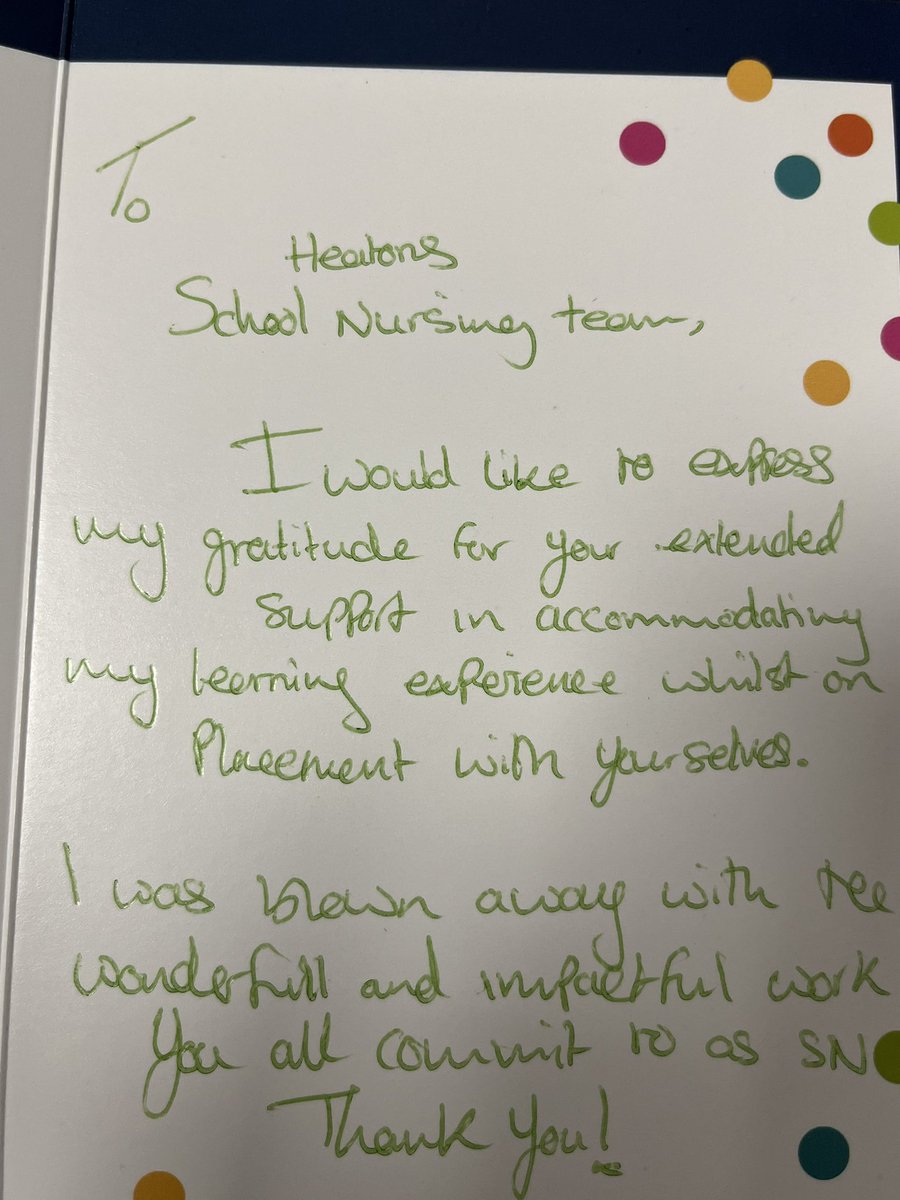 To
Heatons
School Nursing team,
I would like to express
my gratitude for your extended
support in accommodating
my learning experience whilst on
Placement with yourselves.
I was blown away with the
wonderfull and impactful work
You all commit to as SN
Thank You!